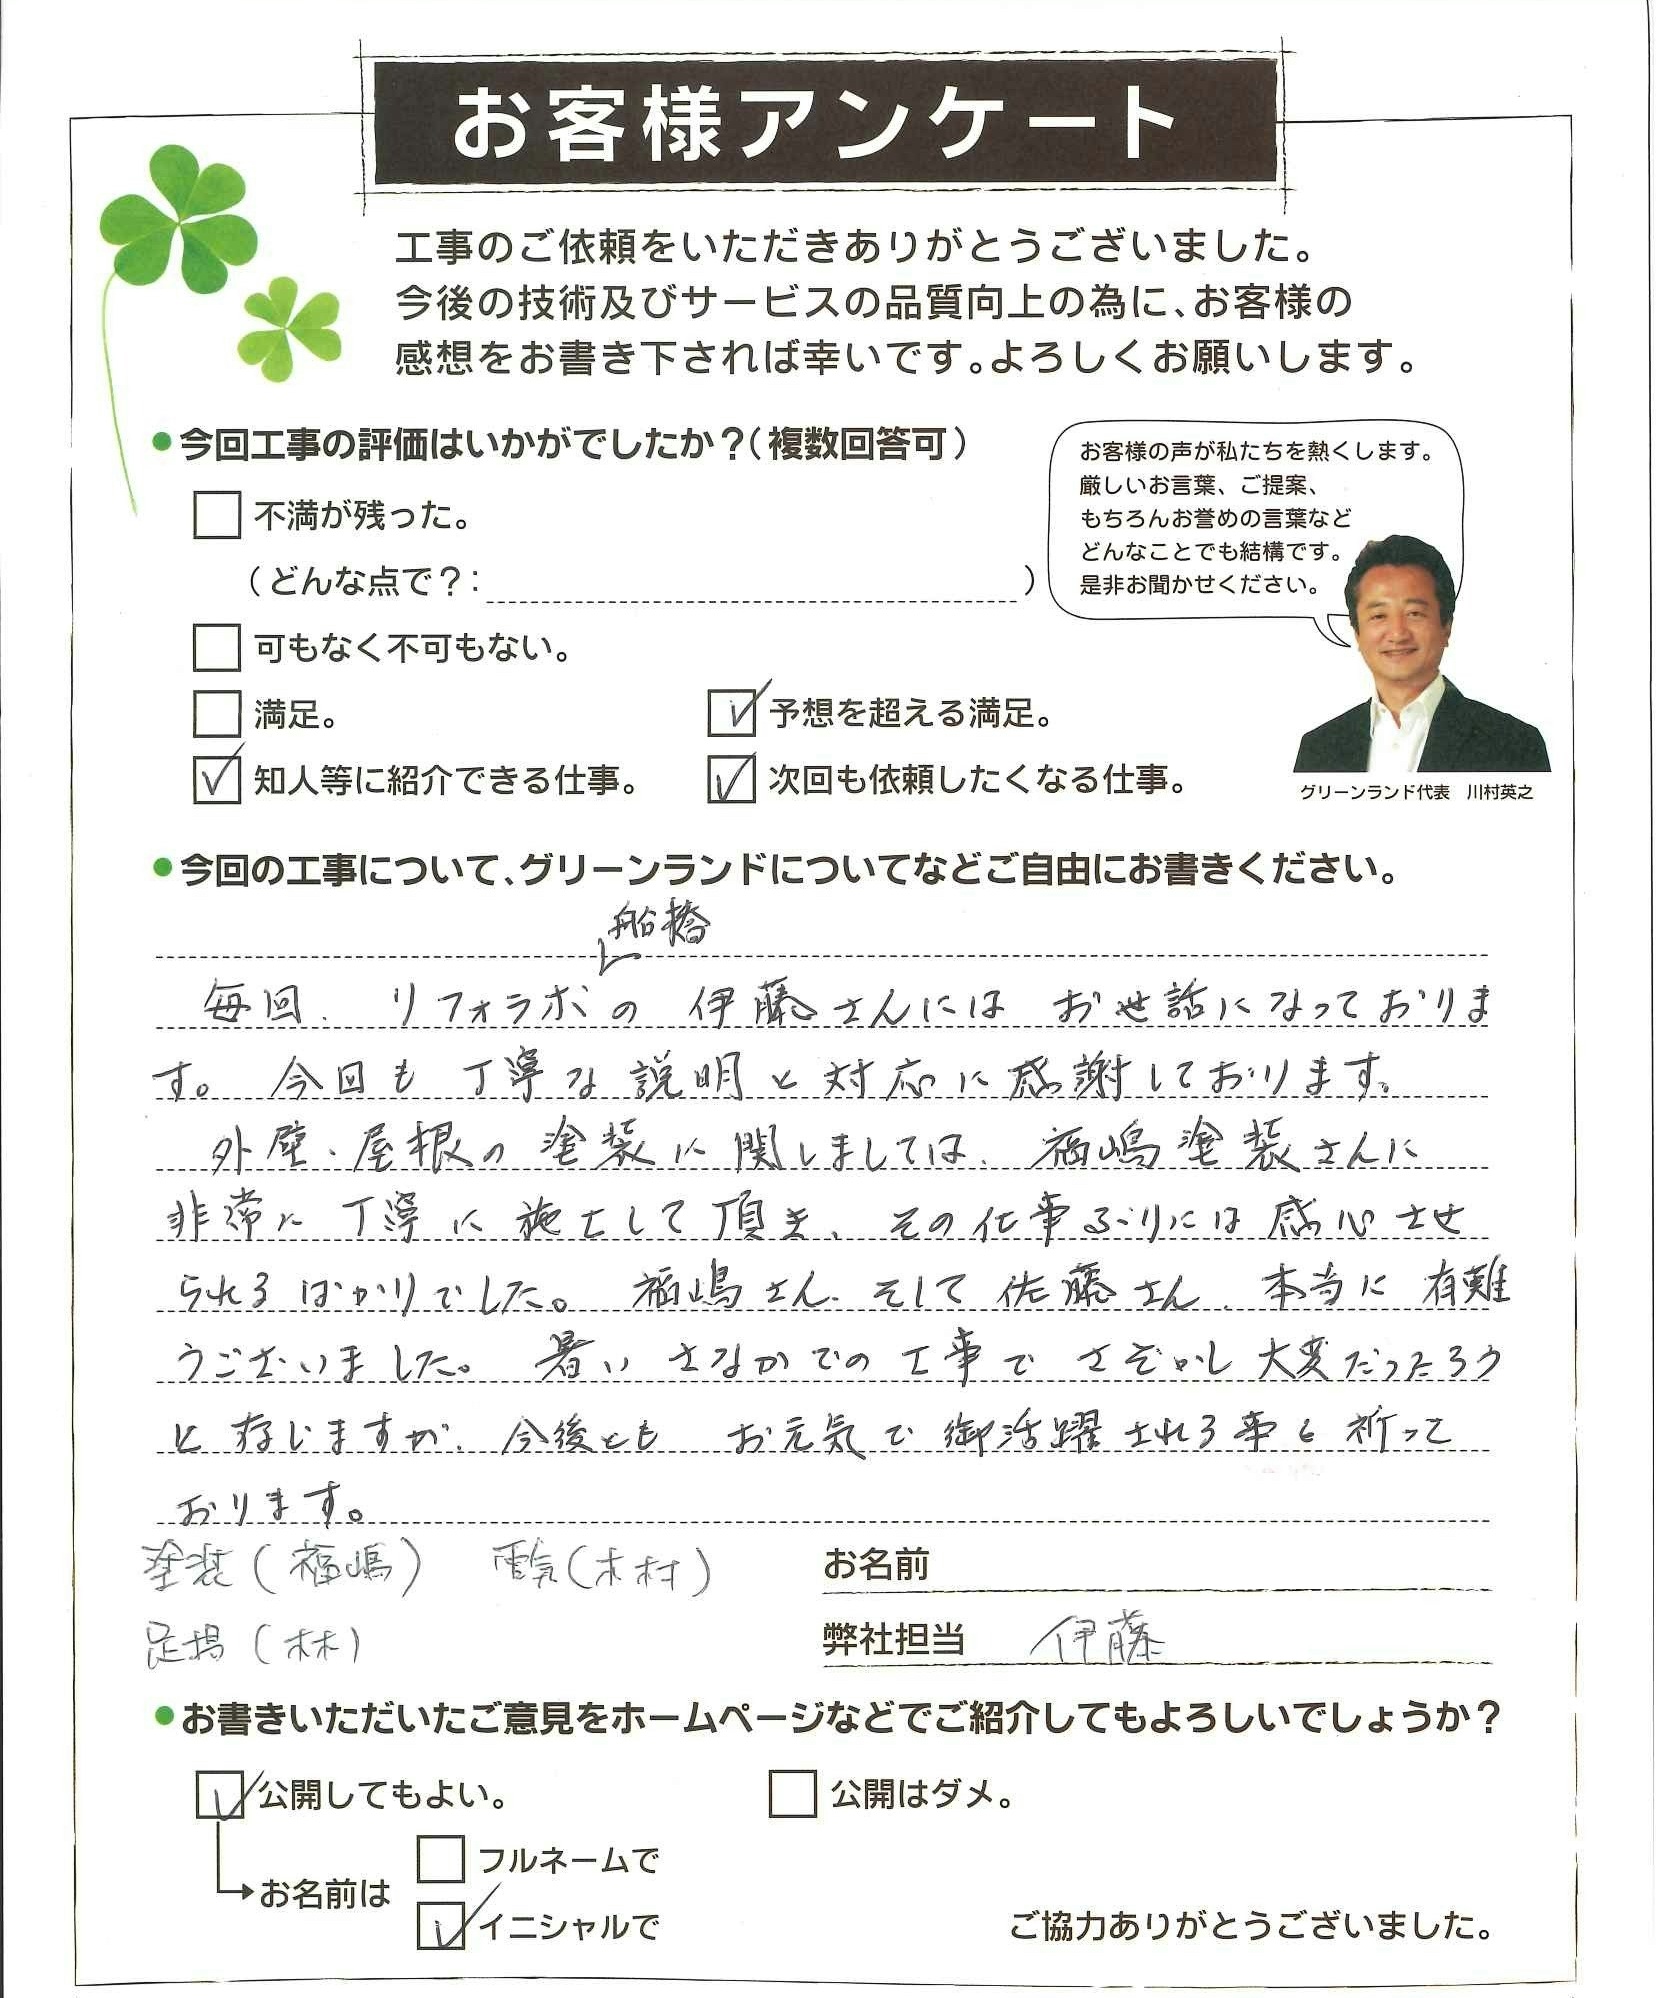 お客様アンケート
工事のご依頼をいただきありがとうございました。
今後の技術及びサービスの品質向上の為に、お客様の
感想をお書き下されば幸いです。よろしくお願いします。
●今回工事の評価はいかがでしたか？（複数回答可）
不満が残った。
（どんな点で？：　）
可もなく不可もない。
満足。
予想を超える満足。
知人等に紹介できる仕事。
次回も依頼したくなる仕事。
お客様の声が私たちを熱くします。
厳しいお言葉、ご提案、
もちろんお誉めの言葉など
どんなことでも結構です。
是非お聞かせください。
グリーンランド代表　川村英之
●今回の工事について、グリーンランドについてなどご自由にお書きください。
船橋
毎回、リフォラボの 伊藤さんには お世話になっておりま
す。 今回も 丁寧な 説明と 対応に 感謝しております。
外壁・屋根の 塗装に 関しましては、福嶋塗装さんに
非常に 丁寧に 施工して 頂き、その仕事ぶりには 感心させ
られる ばかりでした。 福嶋さん、そして 佐藤さん、本当に 有難
うございました。 暑い さなかでの 工事で さぞかし 大変だったろう
と 存じますが、今後とも お元気で 御活躍される事を 祈って
おります。
塗装（福嶋） 電気（木村）
足場（林）
お名前
弊社担当 伊藤
●お書きいただいたご意見をホームページなどでご紹介してもよろしいでしょうか？
公開してもよい。
公開はダメ。
お名前は
フルネームで
イニシャルで
ご協力ありがとうございました。